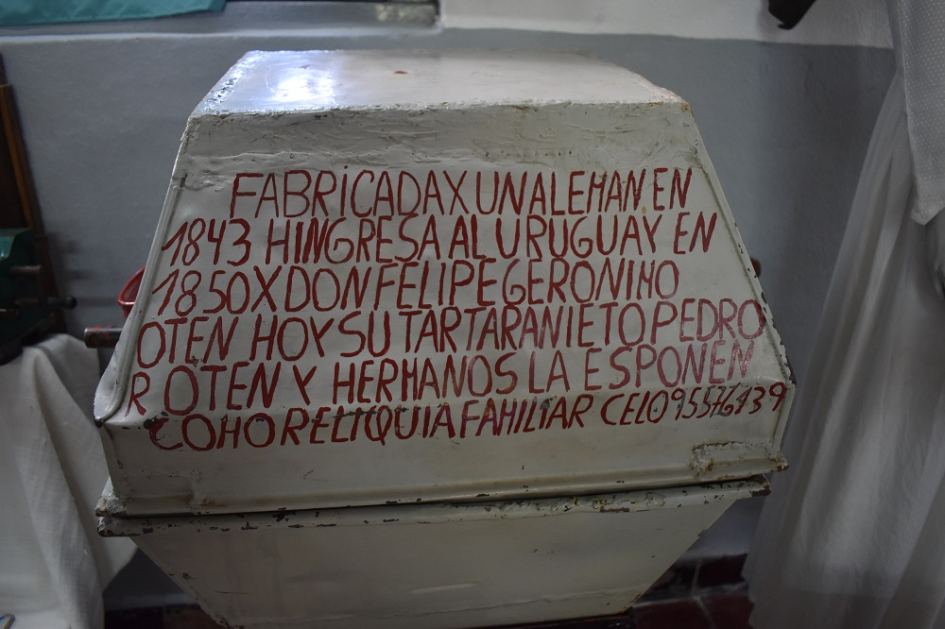 FABRICADA X UN ALEMAN EN
1843 HINGRESA AL URUGUAY EN
1850 X DON FELIPE GERONIMO
OTEN HOY SU TARTARANIETO PEDRO
R OTEN Y HERMANOS LA ESPONEN
COMO RELIQUIA FAMILIAR CELO